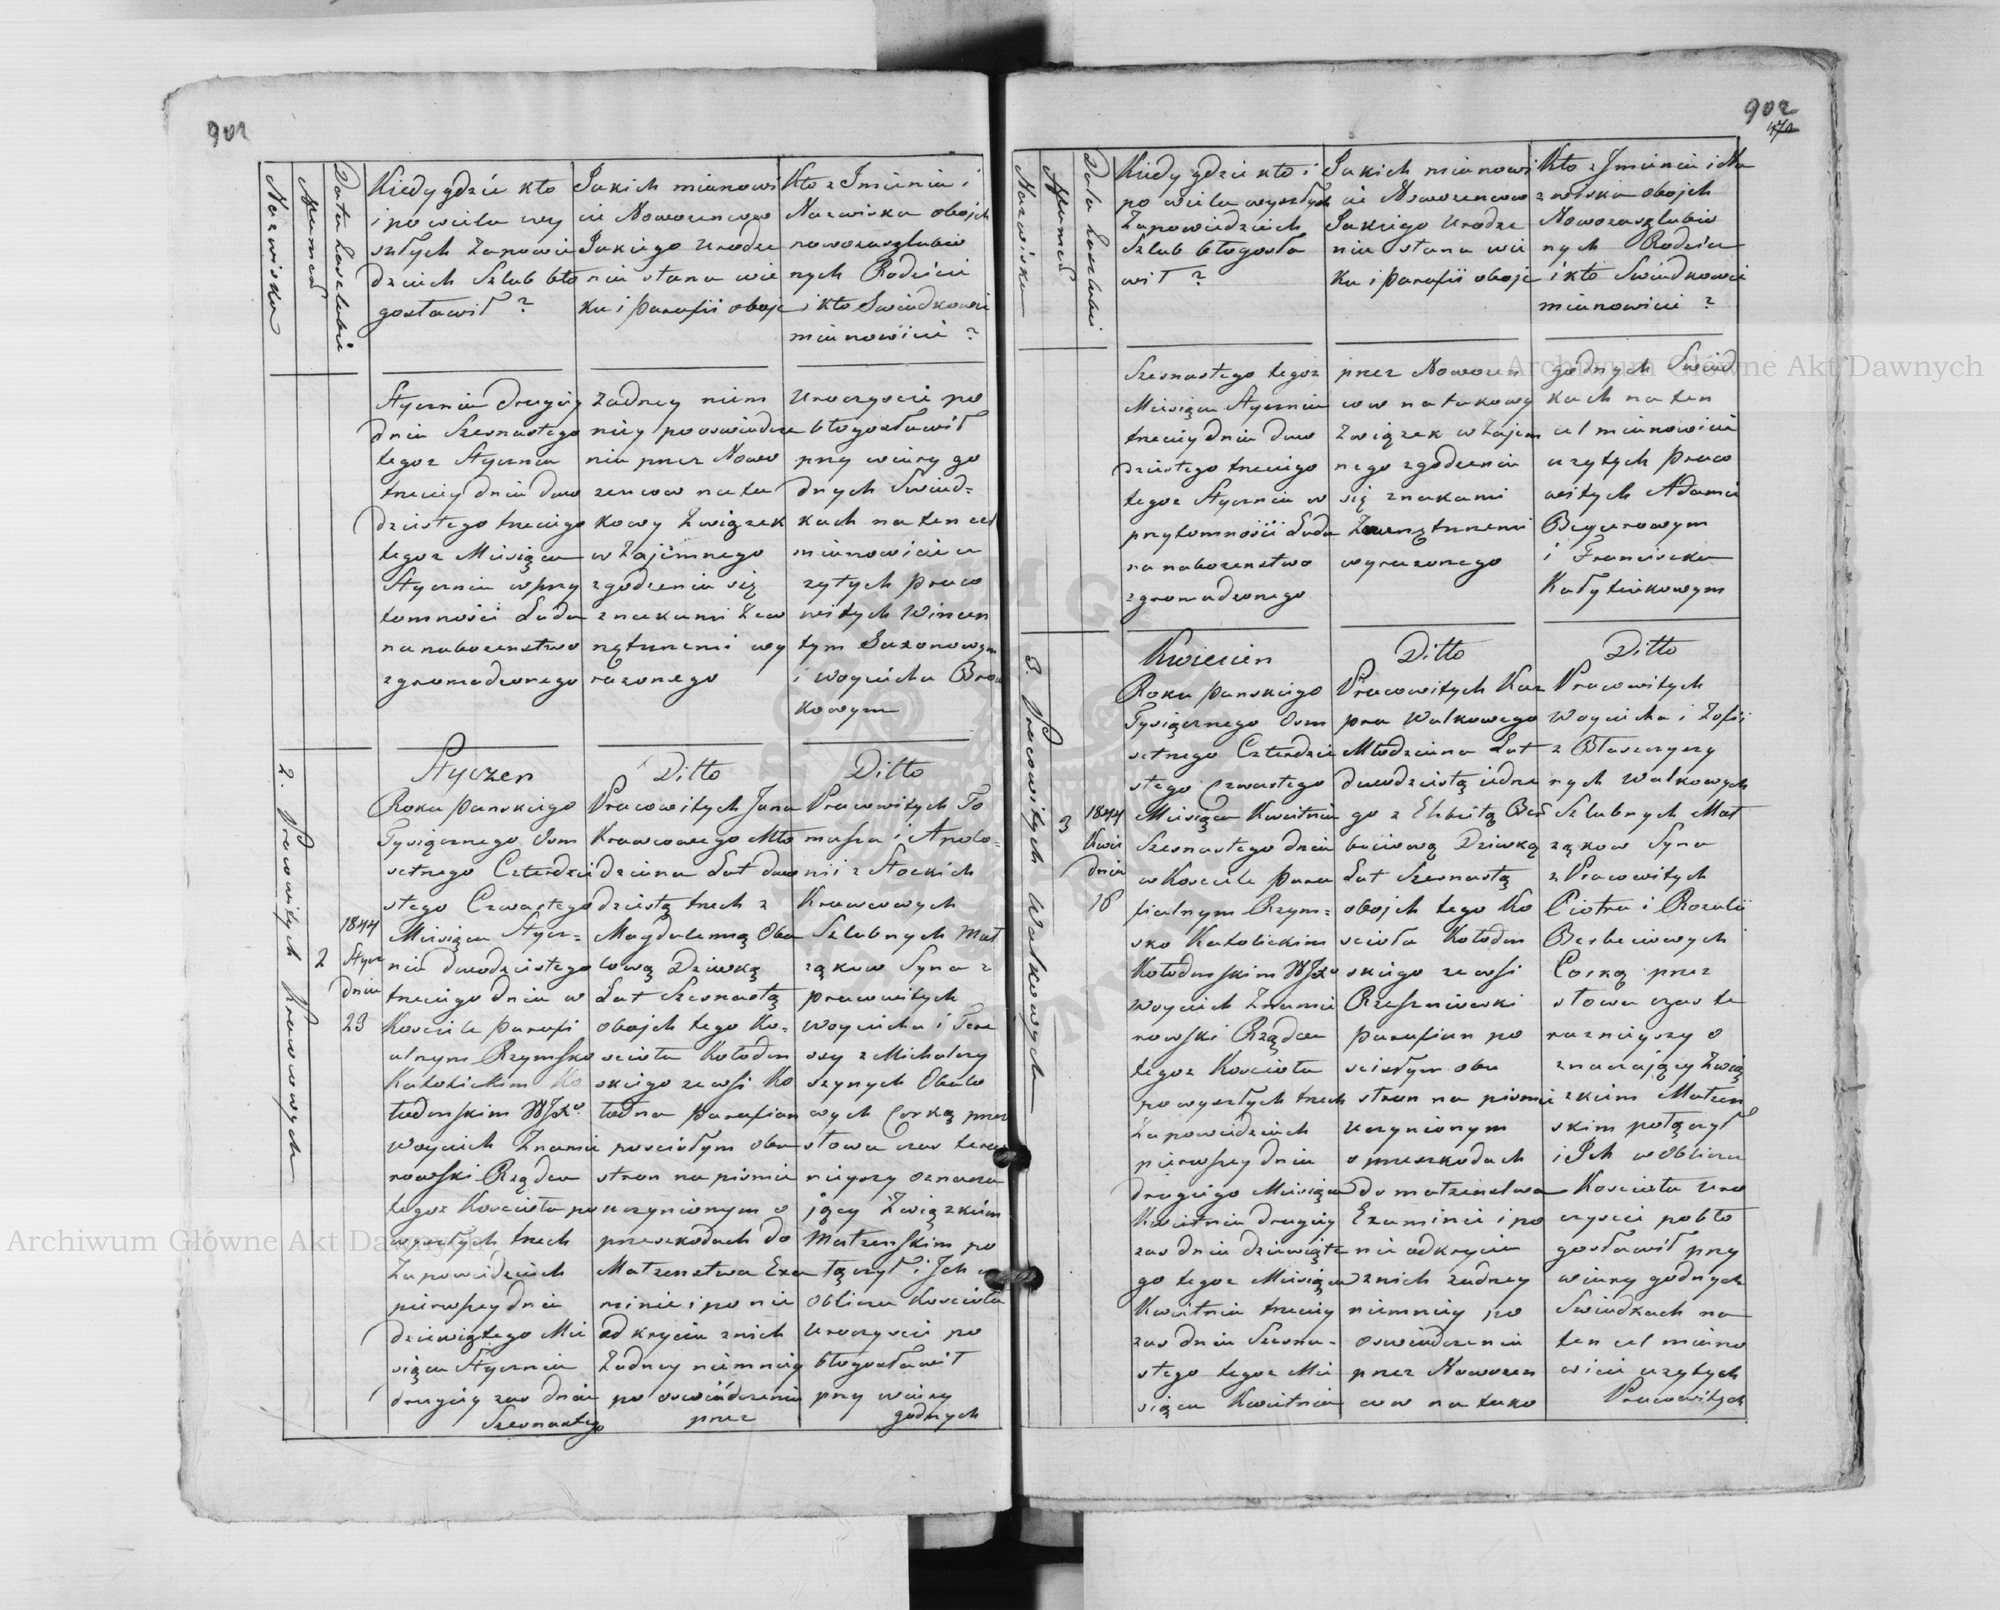 901
Nazwiska
Numera
Data zaslubie
Kiedy gdzie kto
i po wielu wy
szłych Zapowie
dziach Szlub bło
gosławił ?
Jakich mianowi
cie Nowozencow
Jakiego urodze
nia stanu wie
ku i parafii oboje
Kto z Imienia i
Nazwiska obojch
nowozaszlubio
nych Rodzicie
i kto Swiadkowie
mianowicie ?
Stycznia drugiey
dnia Szesnastego
tegoz Stycznia
trzeciey dnia dwu
dziestego trzeciego
tegoz Miesiąca
Stycznia w przy
tomności Ludu
na nabozenstwo
zgromadzonego
zadney niem
niey po oswiadcze
niu przez Nowo
zencow na ta
kowy Związek
wzajemnego
zgodzenia się
znakami zew
nętrznemi wy
razonego
Uroczyscie po
błogosławił
przy wiary go
dnych Swiad=
kach na ten cel
mianowicie u
zytych praco
witych Wincen
tym Saxonowym
i Woyciecha Bro
kowym
2. Pracowitych Krawcowych
2
1844
Stycz
dnia
23
Styczen
Roku panskiego
Tysiącznego Osm
setnego Czterdzie
stego Czwartego
Miesiąca Stycz=
nia dwudziestego
trzeciego dnia w
Kosciele parafi
alnym Rzymsko
Katolickim Ko
łodenskim WJX
Woyciech Znamie
rowski Rządca
tegoz Kosciola po
wyszłych trzech
Zapowiedziach
pierwszey dnia
dziewiątego Mie
siąca Stycznia
drugiey zas dnia
Szesnastego
Ditto
Pracowitych Jana
Krawcowego Mło
dziana Lat dwu
dziestą trzech z
Magdalenną Oba
lową Dziewką
Lat Szesnastą
obojch tego Ko=
sciola Kołoden
skiego ze wsi Ko
łodna parafian
po scisłym obu
stron na pismie
uczynionym o
przeszkodach do
Matzenstwa Exa
minie i po nie
odkryciu z nich
zadney niemniey
po oswiadczeniu
przez
Ditto
Pracowitych To
masza i Apolo=
nii z Stockich
Krawcowych
Szlubnych Mał
ząkow Syna z
pracowitych
Woyciecha i Tere
ssy z Michalczy
szynych Obalo
wych Corką przez
słowa czas teraz
nieyszy oznacza
jący Związkiem
Matzenskim po
łączył i Ich w
Obliczu Kosciola
Uroczyscie po
błogosławił
przy wiary
godnych
902
Nazwiska
Numera
Data zaslubie
Kiedy gdzie kto i
po wielu wyszłych
Zapowiedziach
Szlub błogosła
wił ?
Jakich mianowi
cie Nowozencow
Jakiego Urodze
nia stanu wie
ku i parafii oboje
Kto z Imienia i Na
zwiska obojch
Nowozaszlubio
nych Rodzice
i kto Swiadkowie
mianowicie ?
Szesnastego tegoz
Miesiąca Stycznia
trzeciey dnia dwu
dziestego trzeciego
tegoz Stycznia w
przytomności Ludu
na nabozenstwo
zgromadzonego
przez Nowozen
cow na takowy
Związek wzajem
nego zgodzenia
się znakami
Zewnętrznemi
wyrazonego
godnych Swiad
kach na ten
cel mianowicie
uzytych praco
witych Adamie
i Francisceka
3. Pracowitych Walkowych
3
1844
Kwie
dnia
16
Kwiecien
Roku panskiego
Tysiącznego Osm
setnego Czterdzie
stego Czwartego
Miesiąca Kwietnia
Szesnastego dnia
w Kosciele para
fialnym Rzym=
sko Katolickim
Kołodenskim WJX
Woyciech Znamie
rowski Rządca
tegoz Kosciola
po wyszłych trzech
Zapowiedziach
pierwszey dnia
drugiego Miesiąca
Kwietnia drugiey
zas dnia dziewiąte
go tegoz Miesiąca
Kwietnia trzeciey
zas dnia Szesna=
stego tegoz Mie
siąca Kwietnia
Ditto
Pracowitych Kaz
pra Walkowego
Młodziana Lat
dwudziestą iedne
go z Elzbietą Ber
beciową Dziewką
Lat Szesnastą
obojch tego Ko
sciola Kołoden
skiego ze wsi
Rzeszniowski
parafian po
scisłym obu
stron na pismie
uczynionym
o przeszkodach
do matzenstwa
Examinie i po
nie odkryciu
z nich zadney
niemniey po
oswiadczeniu
przez Nowozen
cow na tako
Ditto
Pracowitych
Woyciecha i Zofii
z Błaszczyszy
nych Walkowych
Szlubnych Mał
ząkow Syna
z Pracowitych
Piotra i Rozalii
Berbeciowych
Corką przez
słowa czas te
raznieyszy o
znaczający Zwią
zkiem Matzen
skim połączył
i Ich w Obliczu
Kosciola Uro
czyscie pobło
gosławił przy
wiary godnych
Swiadkach na
ten cel miano
wicie uzytych
Pracowitych
Archiwum Główne Akt Dawnych
Archiwum Główne Akt Dawnych